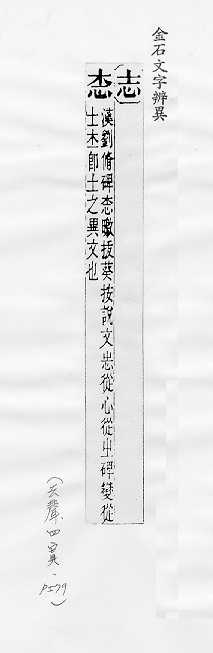 金石文字辨異
志
漢劉脩碑曒拔葵按說文志從心從㞢碑變從
士即士之異文也
(去聲.四寘.P579)